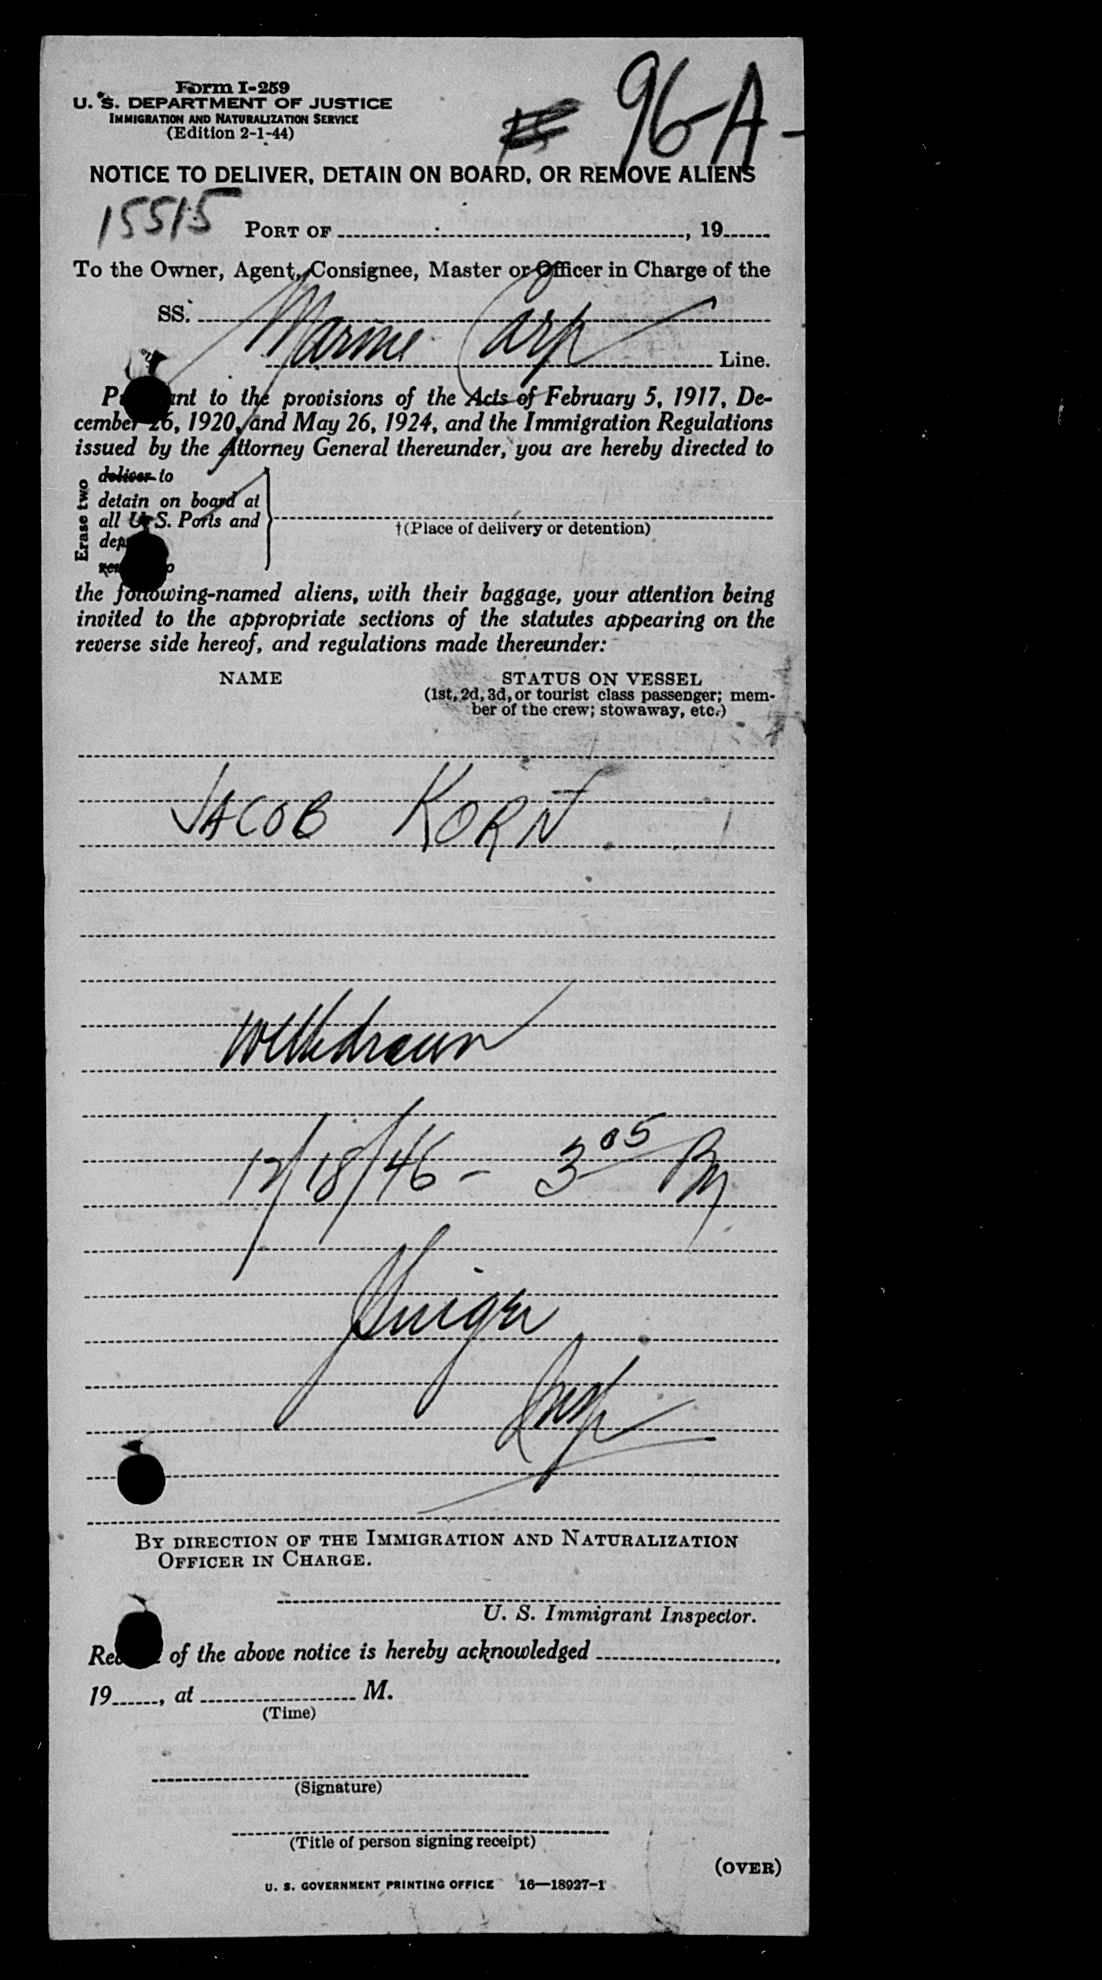 Form I-259
U. S. DEPARTMENT OF JUSTICE
IMMIGRATION AND NATURALIZATION SERVICE
(Edition 2-1-44)
96-A-
NOTICE TO DELIVER, DETAIN ON BOARD, OR REMOVE ALIENS
15515
PORT OF , 19
To the Owner, Agent, Consignee, Master or Officer in Charge of the
SS. Marine Carp
Line.
Pursuant to the provisions of the Acts of February 5, 1917, De-
cember 26, 1920, and May 26, 1924, and the Immigration Regulations
issued by the Attorney General thereunder, you are hereby directed to
Erase two
deliver to
detain on board at
all U. S. Ports and
†(Place of delivery or detention)
the following-named aliens, with their baggage, your attention being
invited to the appropriate sections of the statutes appearing on the
reverse side hereof, and regulations made thereunder:
NAME STATUS ON VESSEL
(1st, 2d, 3d, or tourist class passenger; mem-
ber of the crew; stowaway, etc.)
JACOB KORN
Withdrawn
12/18/46 - 3 05 PM
Insp
BY DIRECTION OF THE IMMIGRATION AND NATURALIZATION
OFFICER IN CHARGE.
U. S. Immigrant Inspector.
Receipt of the above notice is hereby acknowledged
19 , at M.
(Time)
(Signature)
(Title of person signing receipt)
(OVER)
U. S. GOVERNMENT PRINTING OFFICE 16—18927-1